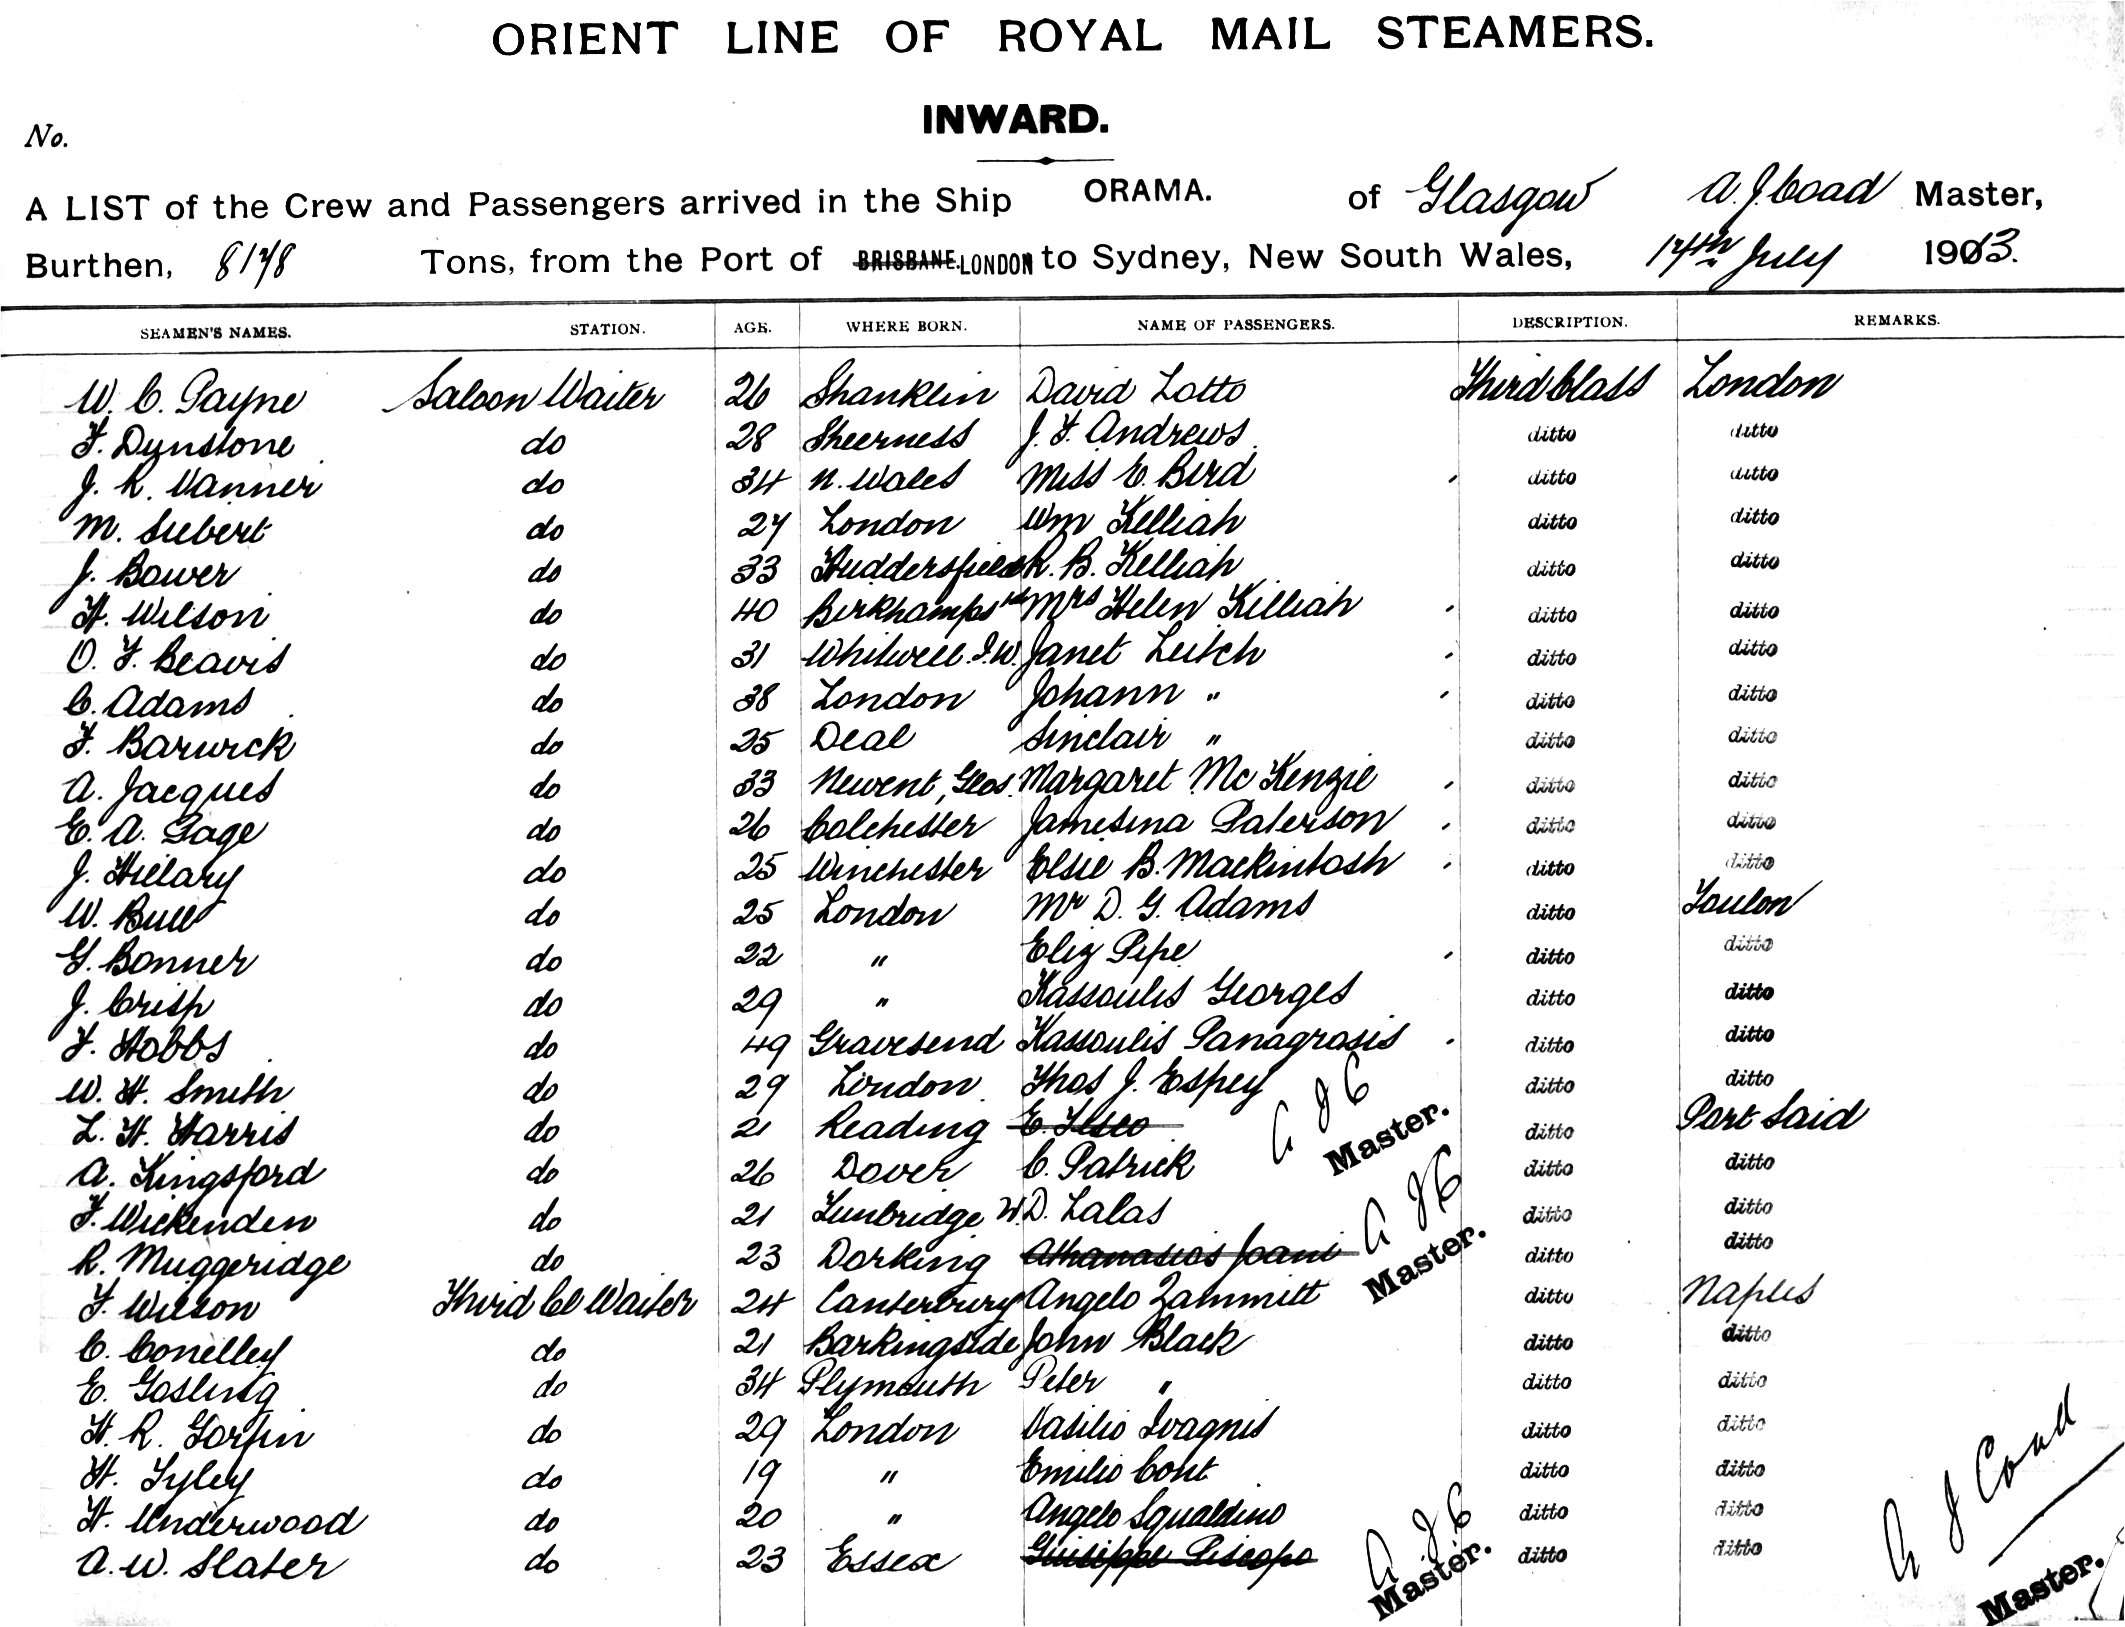 ORIENT LINE OF ROYAL MAIL STEAMERS.
INWARD.
No.
A LIST of the Crew and Passengers arrived in the Ship ORAMA. of Glasgow A. J. Coad Master,
Burthen, 8178 Tons, from the Port of BRISBANE. LONDON to Sydney, New South Wales, 17th July 1913.
SEAMEN'S NAMES. STATION. AGE. WHERE BORN. NAME OF PASSENGERS. DESCRIPTION. REMARKS.
W. C. Payne Saloon Waiter 26 Shanklin David Lotto Third Class London
F. Dunstone do 28 Sheerness J. F. Andrews ditto ditto
J. R. Vanner do 34 N. Wales Miss E. Bird ditto ditto
M. Siebert do 27 London Wm Kelliah ditto ditto
J. Bower do 33 Huddersfield R. B. Kelliah ditto ditto
H. Wilson do 40 Berkhampstd Mrs Helen Killiah ditto ditto
O. F. Beavis do 31 Whitwell. I.W. Janet Leitch ditto ditto
C. Adams do 38 London Johann " ditto ditto
F. Barwick do 25 Deal Sinclair " ditto ditto
A. Jacques do 33 Newent, Glos. Margaret McKenzie ditto ditto
E. A. Page do 26 Colchester Jamesina Paterson ditto ditto
J. Hillary do 25 Winchester Elsie B. Mackintosh ditto ditto
W. Bull do 25 London Mr D. G. Adams ditto Toulon
G. Bonner do 22 " Eliz Pipe ditto ditto
J. Crisp do 29 " Kassoulis Georges ditto ditto
F. Hobbs do 49 Gravesend Kassoulis Panagrosis ditto ditto
W. H. Smith do 29 London Thos J. Espey ditto ditto
L. H. Harris do 21 Reading E. A J C Master. ditto Port Said
A. Kingsford do 26 Dover C. Patrick ditto ditto
F. Wickenden do 21 Tunbridge W. D. Lalas ditto ditto
R. Muggeridge do 23 Dorking Athanasios Joani A J C Master. ditto ditto
F. Wilson Third Cl Waiter 24 Canterbury Angelo Zammitt ditto Naples
C. Conelley do 21 Barkingside John Black ditto ditto
E. Gosling do 34 Plymouth Peter " ditto ditto
H. R. Gorfin do 29 London Vasilio Ivagnis ditto ditto
H. Tyley do 19 " Emilio Cont ditto ditto
H. Underwood do 20 " Angelo Squaldino ditto ditto
A. W. Slater do 23 Essex Guiseppe Piscopo A J C Master. ditto ditto
A J Coad
Master.